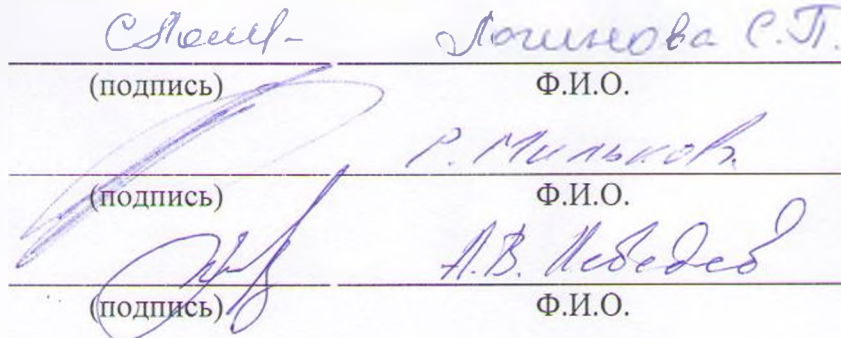 Логинова С.П.
(подпись) Ф.И.О.
Р. Мильков
(подпись) Ф.И.О.
А.В. Лебедев
(подпись) Ф.И.О.